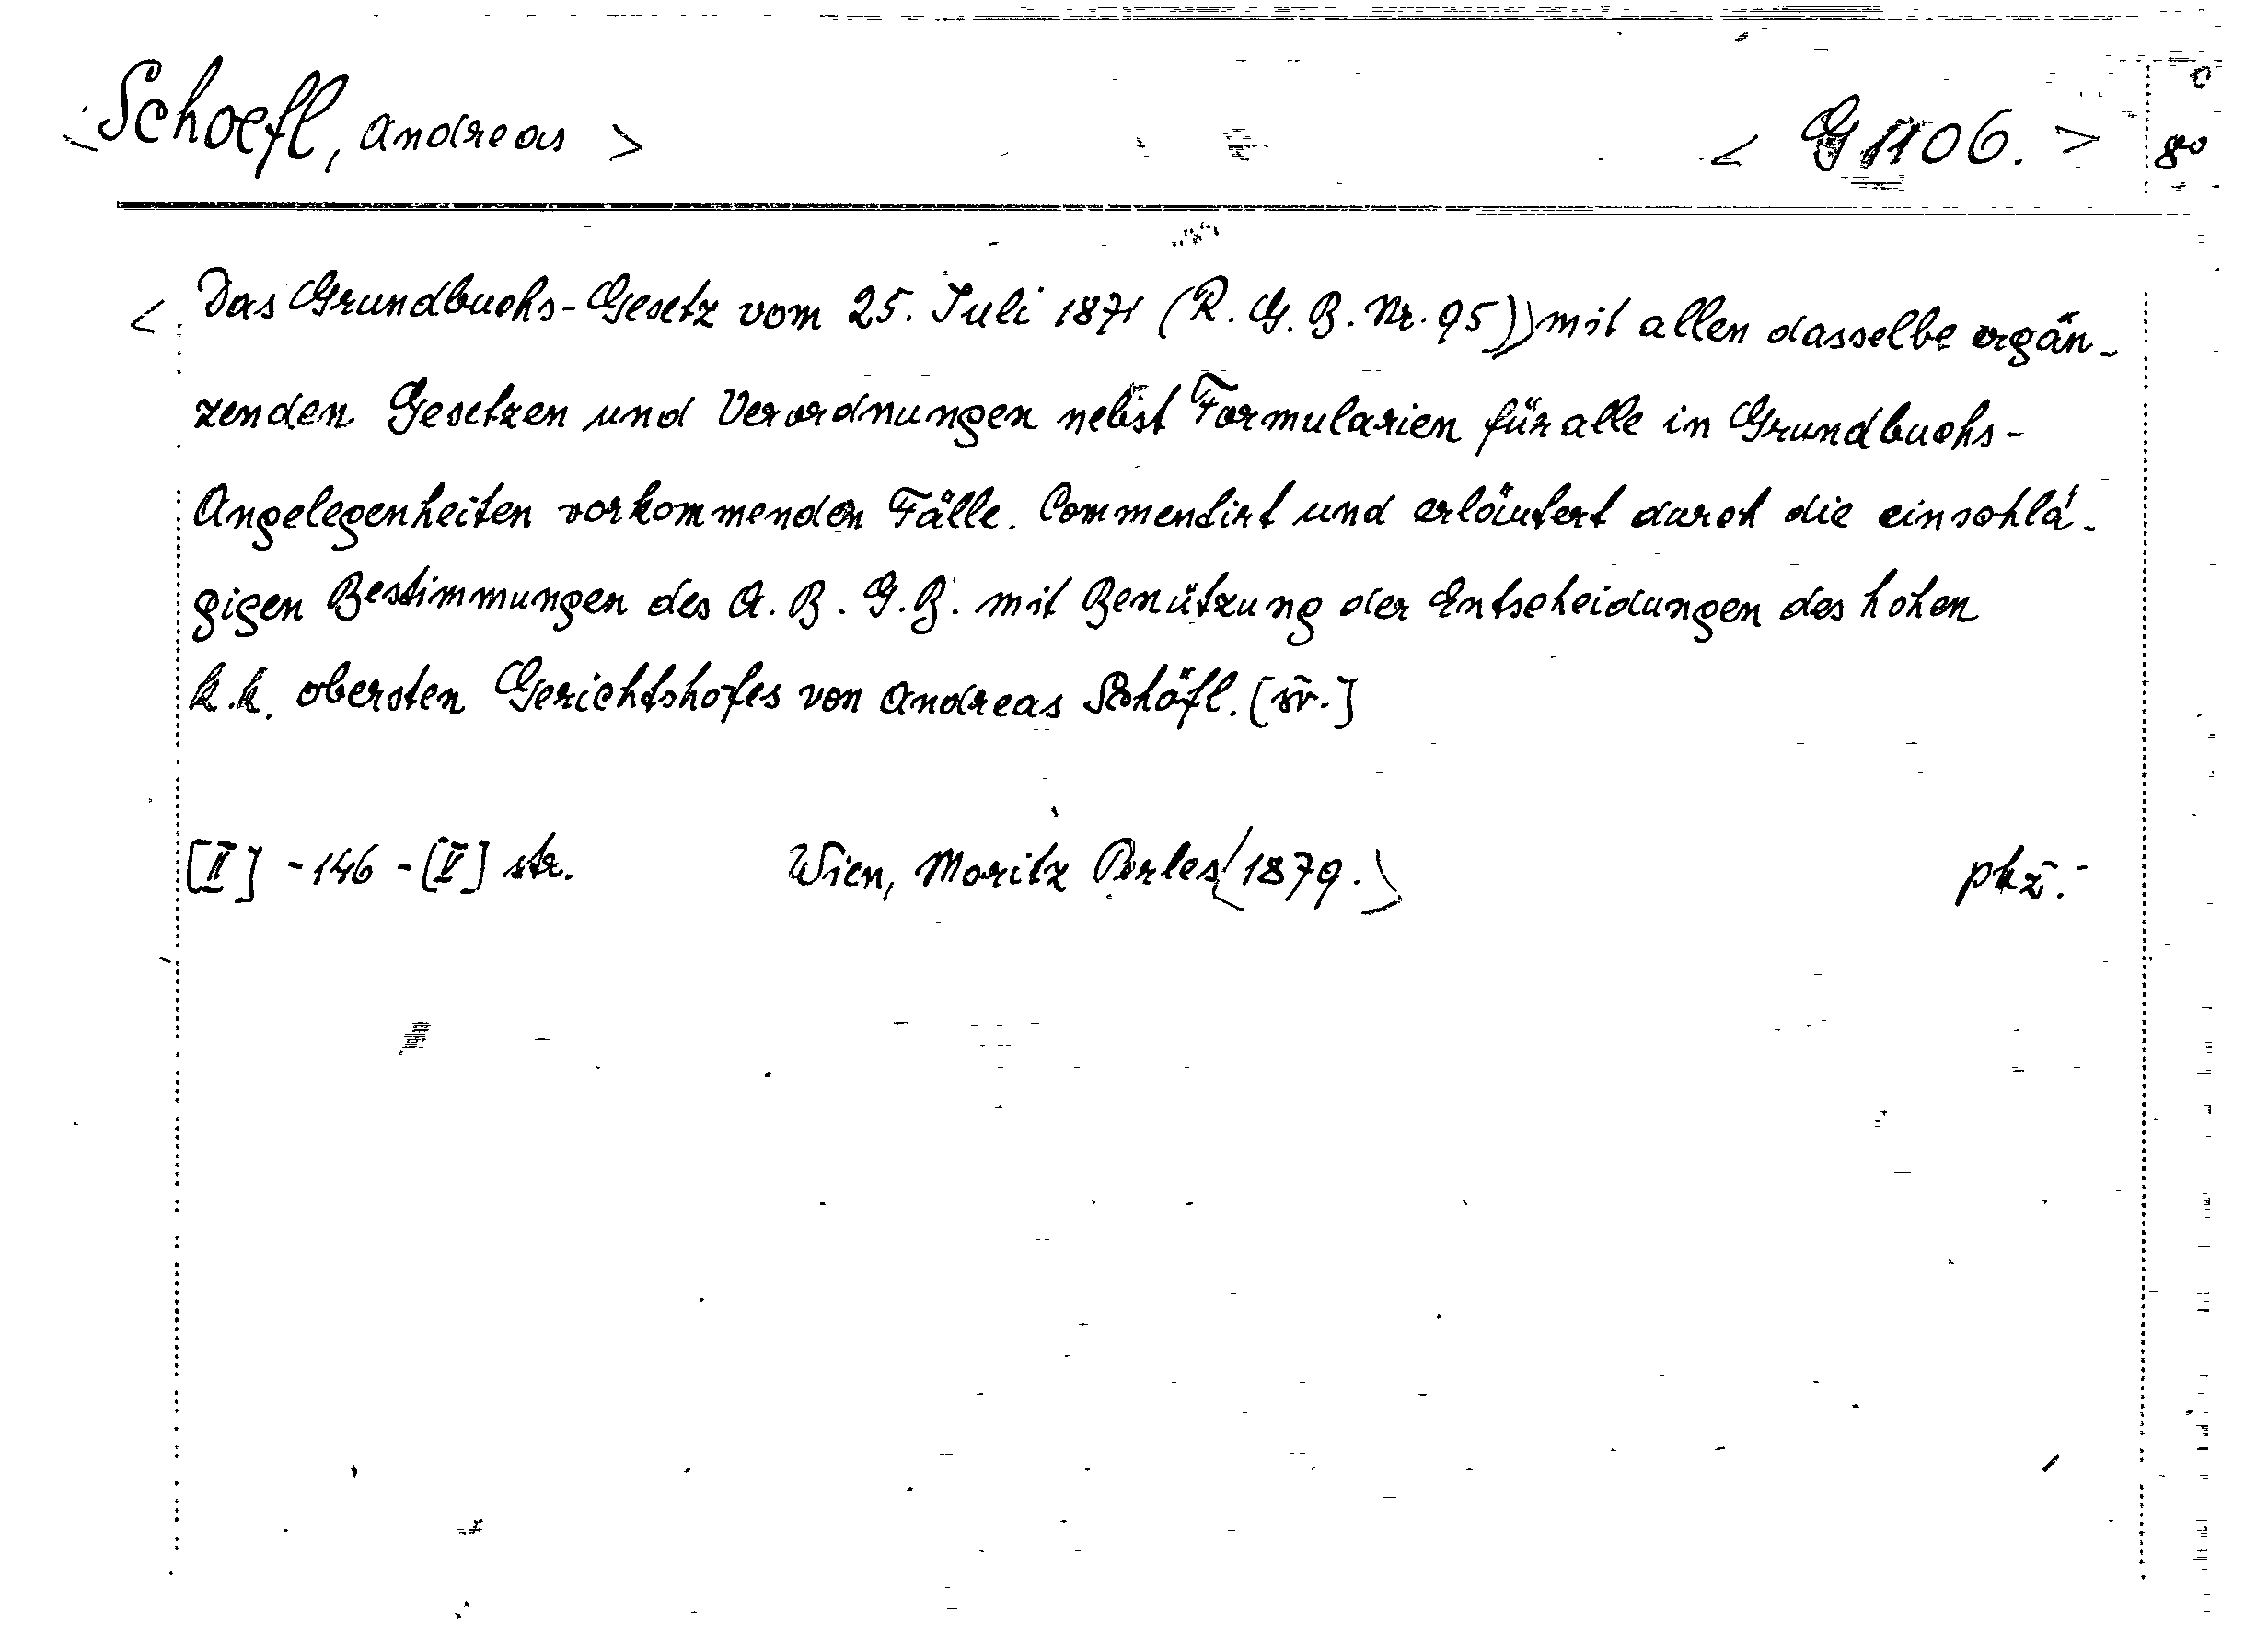 <Schoefl, Andreas> <G 1106.> 8o
<Das Grundbuchs-Gesetz vom 25. Juli 1871 (R. G. B. Nr. 95)> mit allen dasselbe ergän-
zenden Gesetzen und Verordnungen nebst Formularien für alle in Grundbuchs-
Angelegenheiten vorkommenden Fälle. Commentirt und erläutert durch die einschlä-
gigen Bestimmungen des A. B. G. B. mit Benützung der Entscheidungen des hohen
k. k. obersten Gerichtshofes von Andreas Schöfl. [sv.]
[II] - 146 - [V] str. Wien, Moritz Perles <1879.> pkž.-